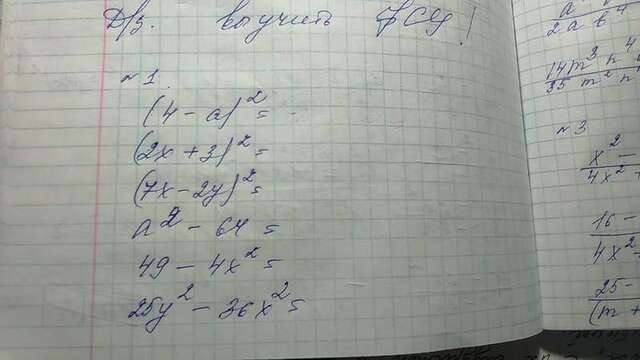 Д/з. выучить ФСУ!
№1.
(4 - a)² =
(2x + 3)² =
(7x - 2y)² =
a² - 64 =
49 - 4x² =
25y² - 36x² =
2a b⁴
14m³n⁴
35m²n
№3
x² -
4x²
16 -
4x² -
25 -
(m +